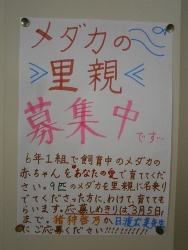 メダカの
里親
募集中
です…
6年1組で飼育中のメダカの
赤ちゃんをあなたの愛で育ててくだ
さい。9匹のメダカを里親に名乗り
でてくださった方に、わけて、育てても
らいます。応募しめきりは、3月5日
まで。
にご応募ください!!!!!!!!